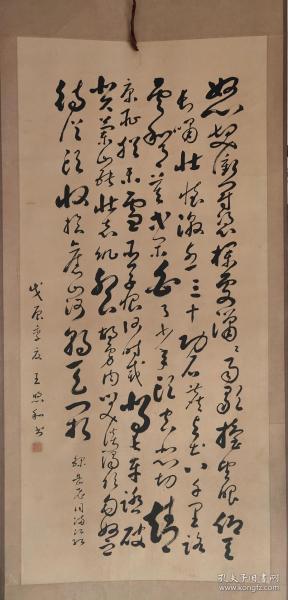 怒髮衝冠憑闌處瀟瀟雨歇抬望眼仰天
長嘯壯懷激烈三十功名塵與土八千里路
雲和月莫等閒白了少年頭空悲切靖
康恥猶未雪臣子恨何時滅駕長車踏破
賀蘭山缺壯志飢餐胡虜肉笑談渴飲匈奴血
待從頭收拾舊山河朝天闕
錄岳飛詞滿江紅
戊辰季夏 王 和書
孔夫子旧书网